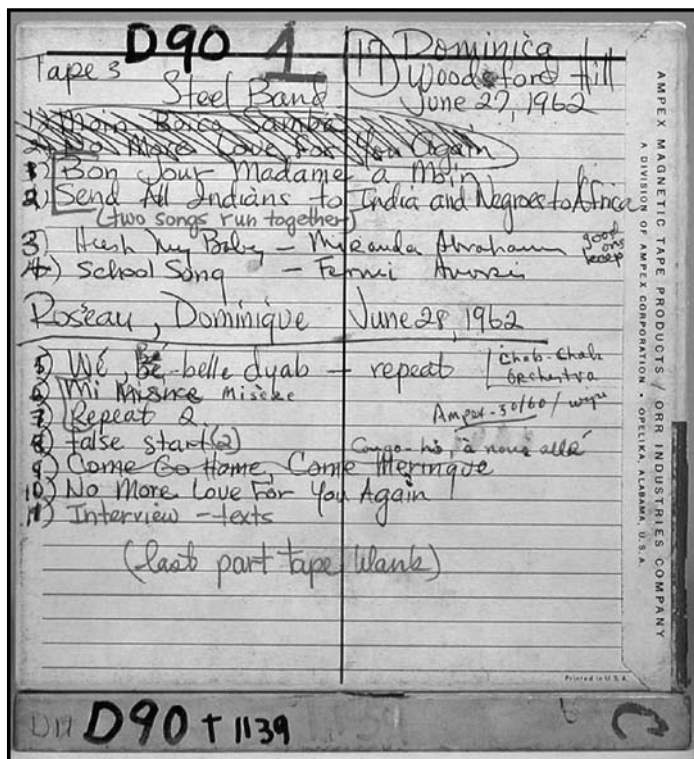 D90 1 17 Dominica
Tape 3 Woodsford Hill
Steel Band June 27, 1962
1) Moin Samba
2) No More Love For You Again
1) Bon Jour Madame a Moin
2) Send All Indians to India and Negroes to Africa
(two songs run together)
3) Hush My Baby – Miranda Abraham good one keep
4) School Song –
Roseau, Dominique June 28, 1962
5) Wé, Bé belle dyab – repeat Chab-Chab Orchestra
6) Mi Misere Misère
7) Repeat 2 Ampex-30/60/
8) false start (2) Congo-hò, à nous allé
9) Come Go Home, Come Meringue
10) No More Love For You Again
11) Interview – texts
(last part tape blank)
D90 T 1139
AMPEX MAGNETIC TAPE PRODUCTS / ORR INDUSTRIES COMPANY
A DIVISION OF AMPEX CORPORATION • OPELIKA, ALABAMA, U.S.A.
Printed in U.S.A.